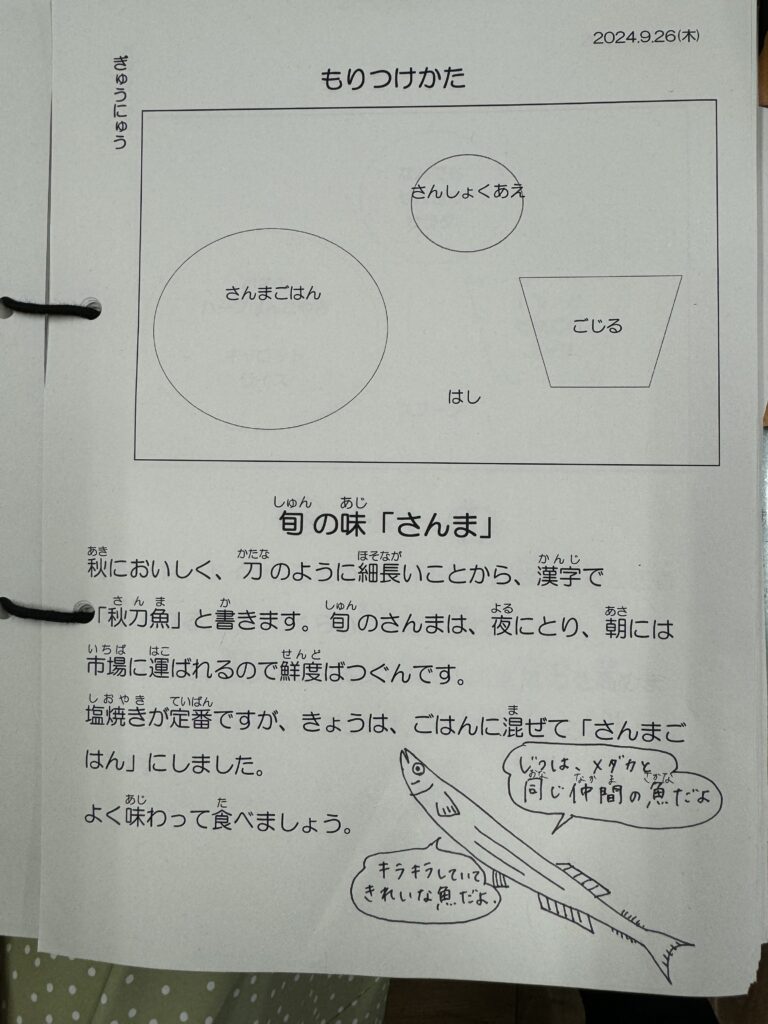 2024.9.26(木)
ぎゅうにゅう
もりつけかた
さんしょくあえ
さんまごはん
ごじる
はし
旬の味「さんま」
秋においしく、刀のように細長いことから、漢字で
「秋刀魚」と書きます。旬のさんまは、夜にとり、朝には
市場に運ばれるので鮮度ばつぐんです。
塩焼きが定番ですが、きょうは、ごはんに混ぜて「さんまご
はん」にしました。
よく味わって食べましょう。
じつは、メダカと
同じ仲間の魚だよ
キラキラしていて
きれいな魚だよ.